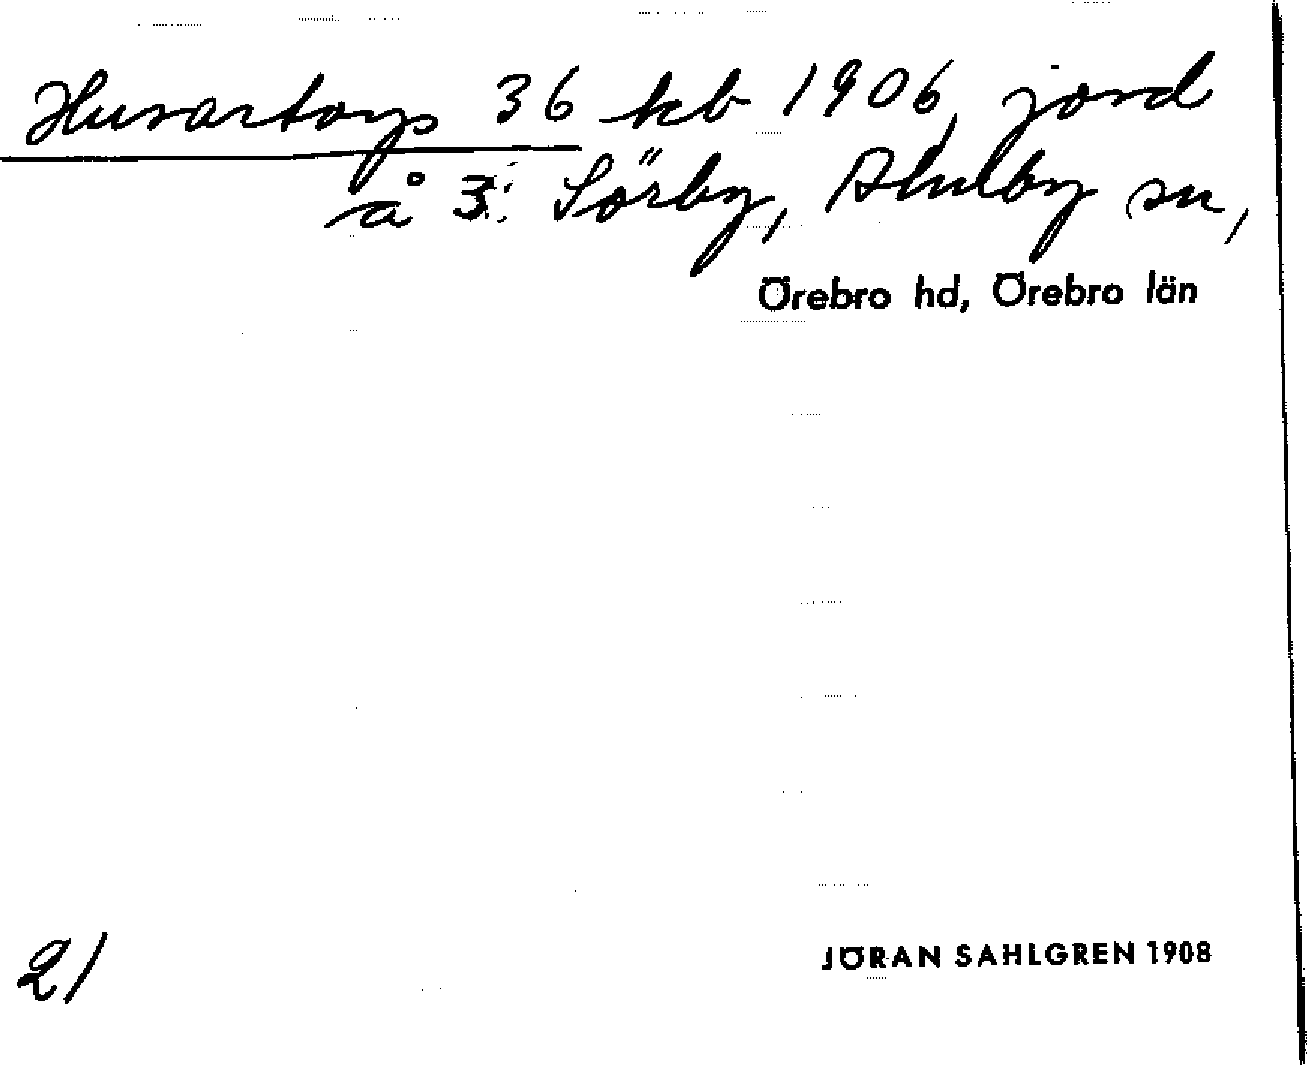 Husartorp 36 kb 1906, jord
å 3: Sörby, Almby sn,
Örebro hd, Örebro län
2/
JÖRAN SAHLGREN 1908